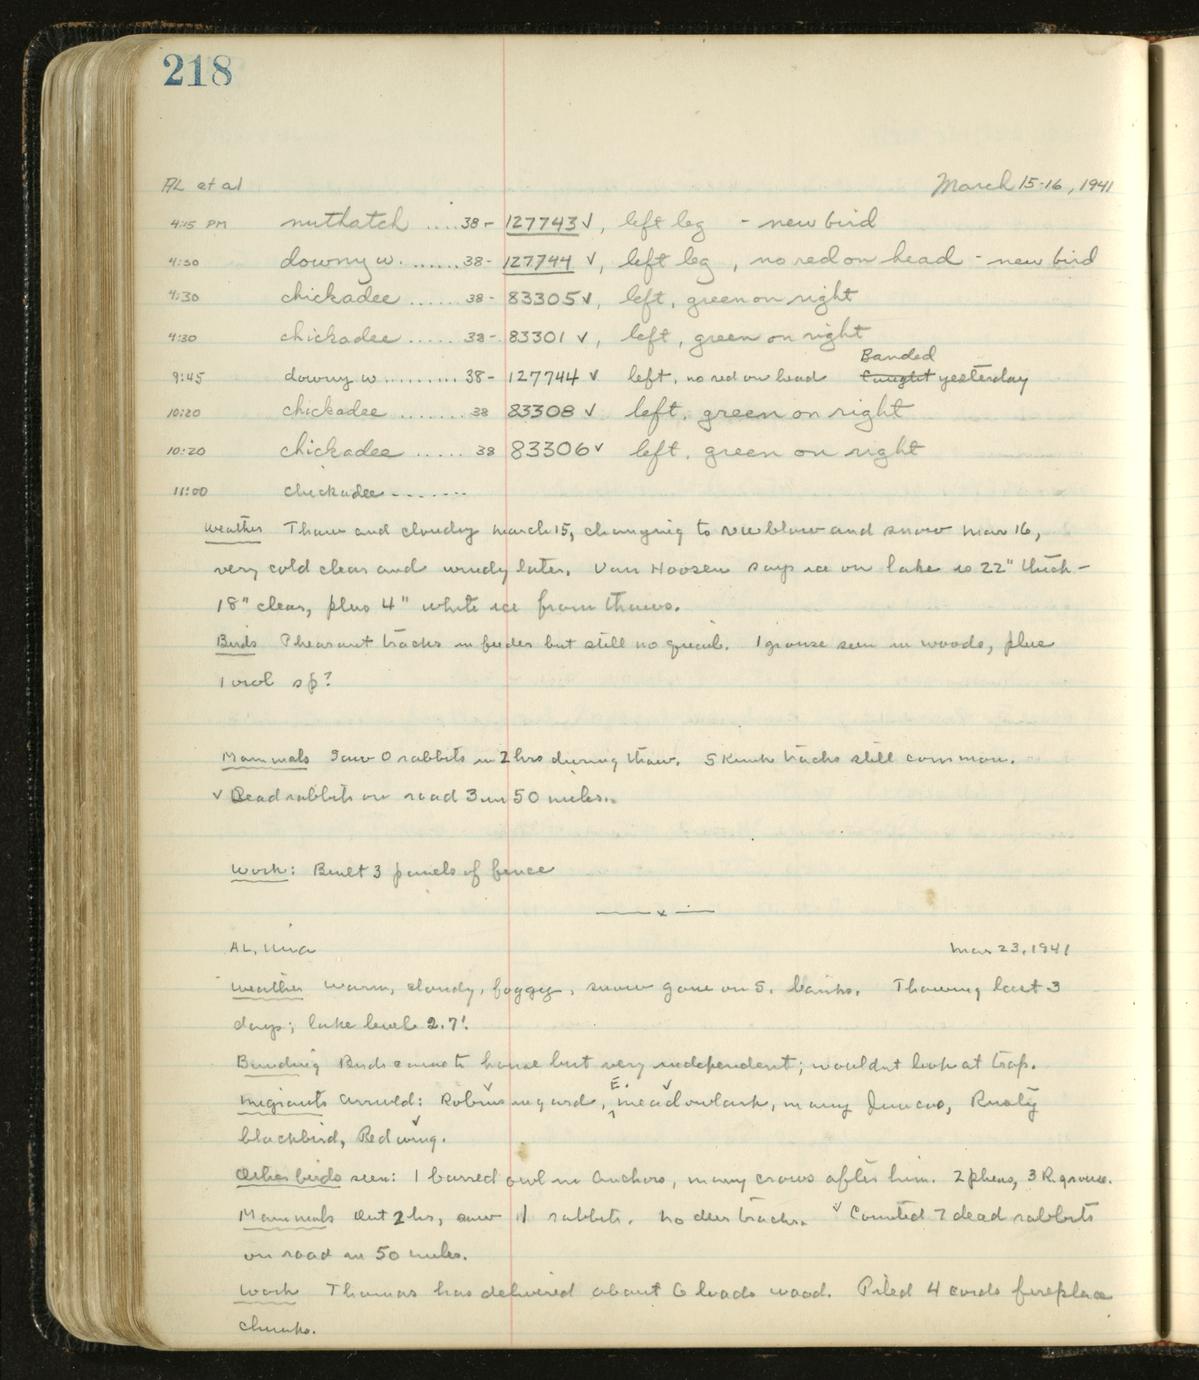 218
AL et al March 15-16, 1941
4:15 PM nuthatch .... 38- 127743 ✓, left leg - new bird
4:30 downy w. ...... 38- 127744 ✓, left leg, no red on head - new bird
4:30 chickadee ...... 38- 83305 ✓, left, green on right
4:30 chickadee ...... 38- 83301 ✓, left, green on right
Banded
9:45 downy w ......... 38- 127744 ✓ left, no red on head Caught yesterday
10:20 chickadee ....... 38 83308 ✓ left, green on right
10:20 chickadee ..... 38 83306 ✓ left, green on right
11:00 chickadee ........
Weather Thaw and cloudy March 15, changing to NW blow and snow Mar 16,
very cold clear and windy later. Van Hoosen says ice on lake is 22" thick -
18" clear, plus 4" white ice from thaws.
Birds Pheasant tracks in feeder but still no quail. 1 grouse seen in woods, plus
1 owl sp?
Mammals Saw 0 rabbits in 2 hrs during thaw. Skunk tracks still common.
✓ Dead rabbits on road 3 in 50 miles.
Work: Built 3 panels of fence
—x—
AL, Nina Mar 23, 1941
Weather Warm, cloudy, foggy, snow gone on S. banks. Thawing last 3
days; lake level 2.7'.
Banding Birds came to house but very independent; wouldnt look at trap.
E.
Migrants arrived: Robins in yard, meadowlark, many Juncos, Rusty
blackbird, Redwing.
Other birds seen: 1 barred owl in Anchors, many crows after him. 2 pheas, 3 R. grouse.
Mammals Out 2 hrs, saw 11 rabbits. No deer tracks. ✓ Counted 7 dead rabbits
on road in 50 miles.
Work Thomas has delivered about 6 loads wood. Piled 4 cords fireplace
chunks.